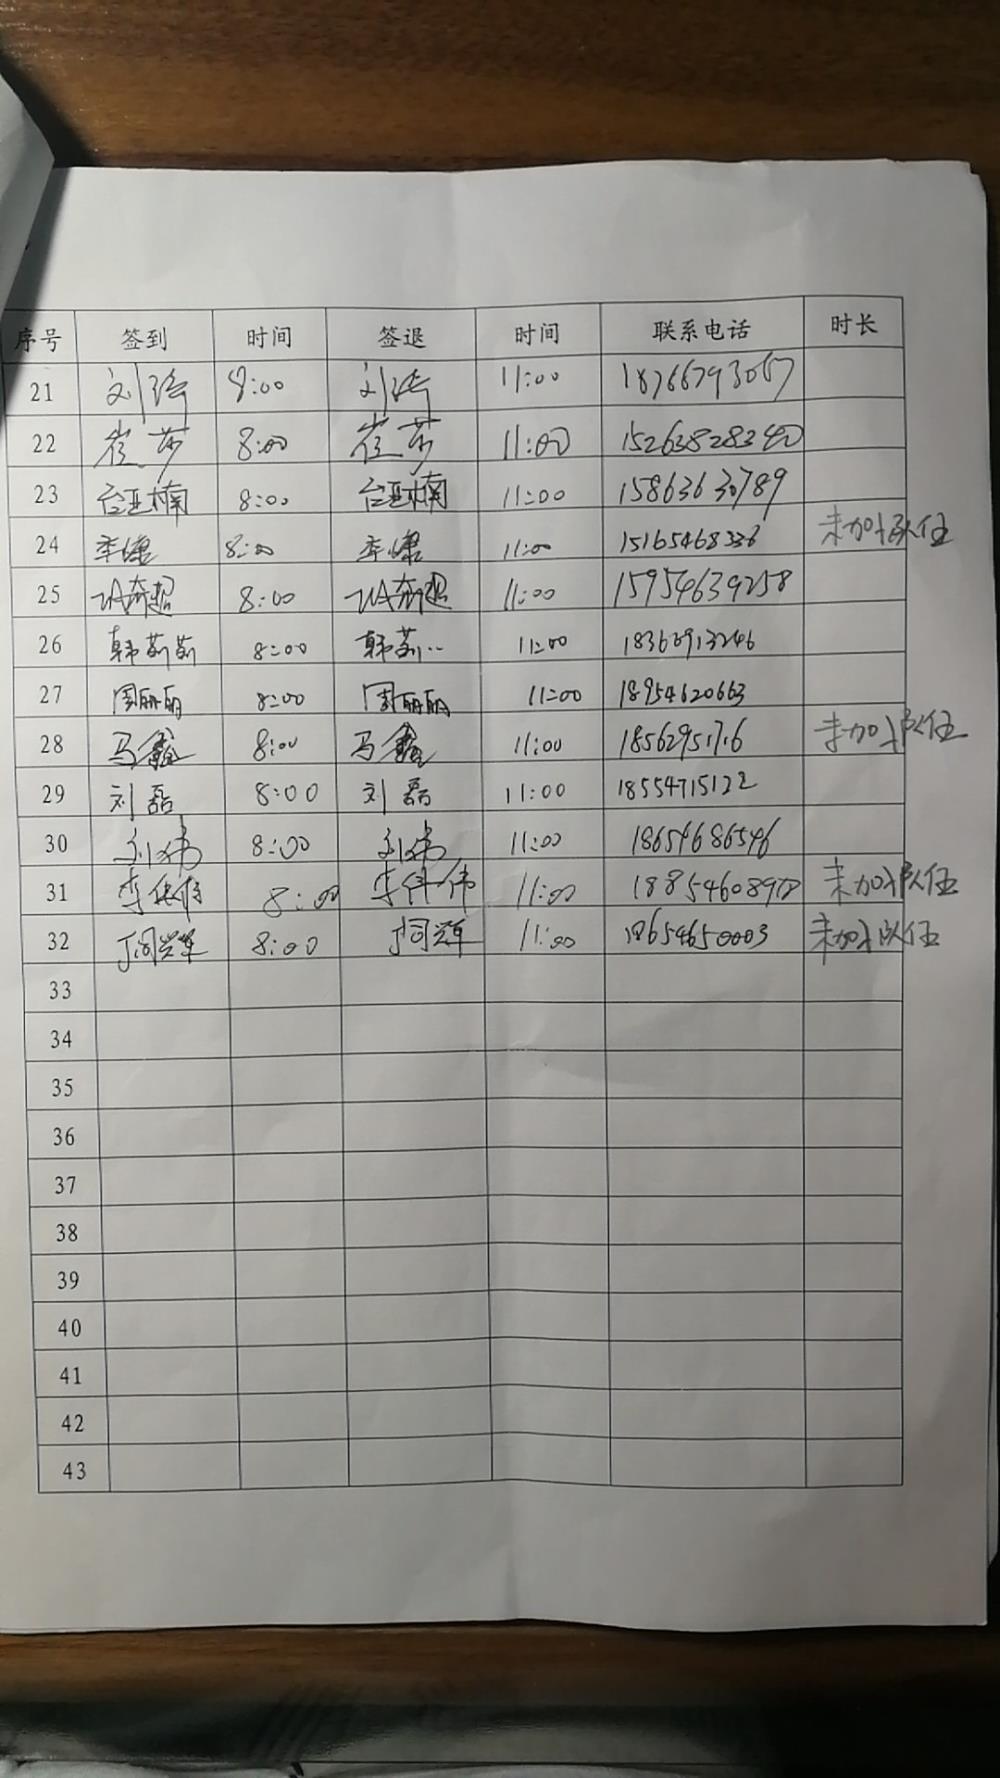 序号 签到 时间 签退 时间 联系电话 时长
21 刘涛 8:00 刘涛 11:00 18766793067
22 崔莎 8:00 崔莎 11:00 15263828340
23 台亚楠 8:00 台亚楠 11:00 15863630789
24 李 8:00 李 11:00 15165468336 未加队伍
25 8:00 11:00 15954639258
26 韩莉莉 8:00 韩莉.. 11:00 18363913246
27 周丽丽 8:00 周丽丽 11:00 18954620663
28 马鑫 8:00 马鑫 11:00 18562951716 未加队伍
29 刘磊 8:00 刘磊 11:00 18554715122
30 刘伟 8:00 刘伟 11:00 18654686546
31 李伟 8:00 李伟 11:00 未加队伍
32 8:00 11:00 18654650003 未加队伍
33
34
35
36
37
38
39
40
41
42
43